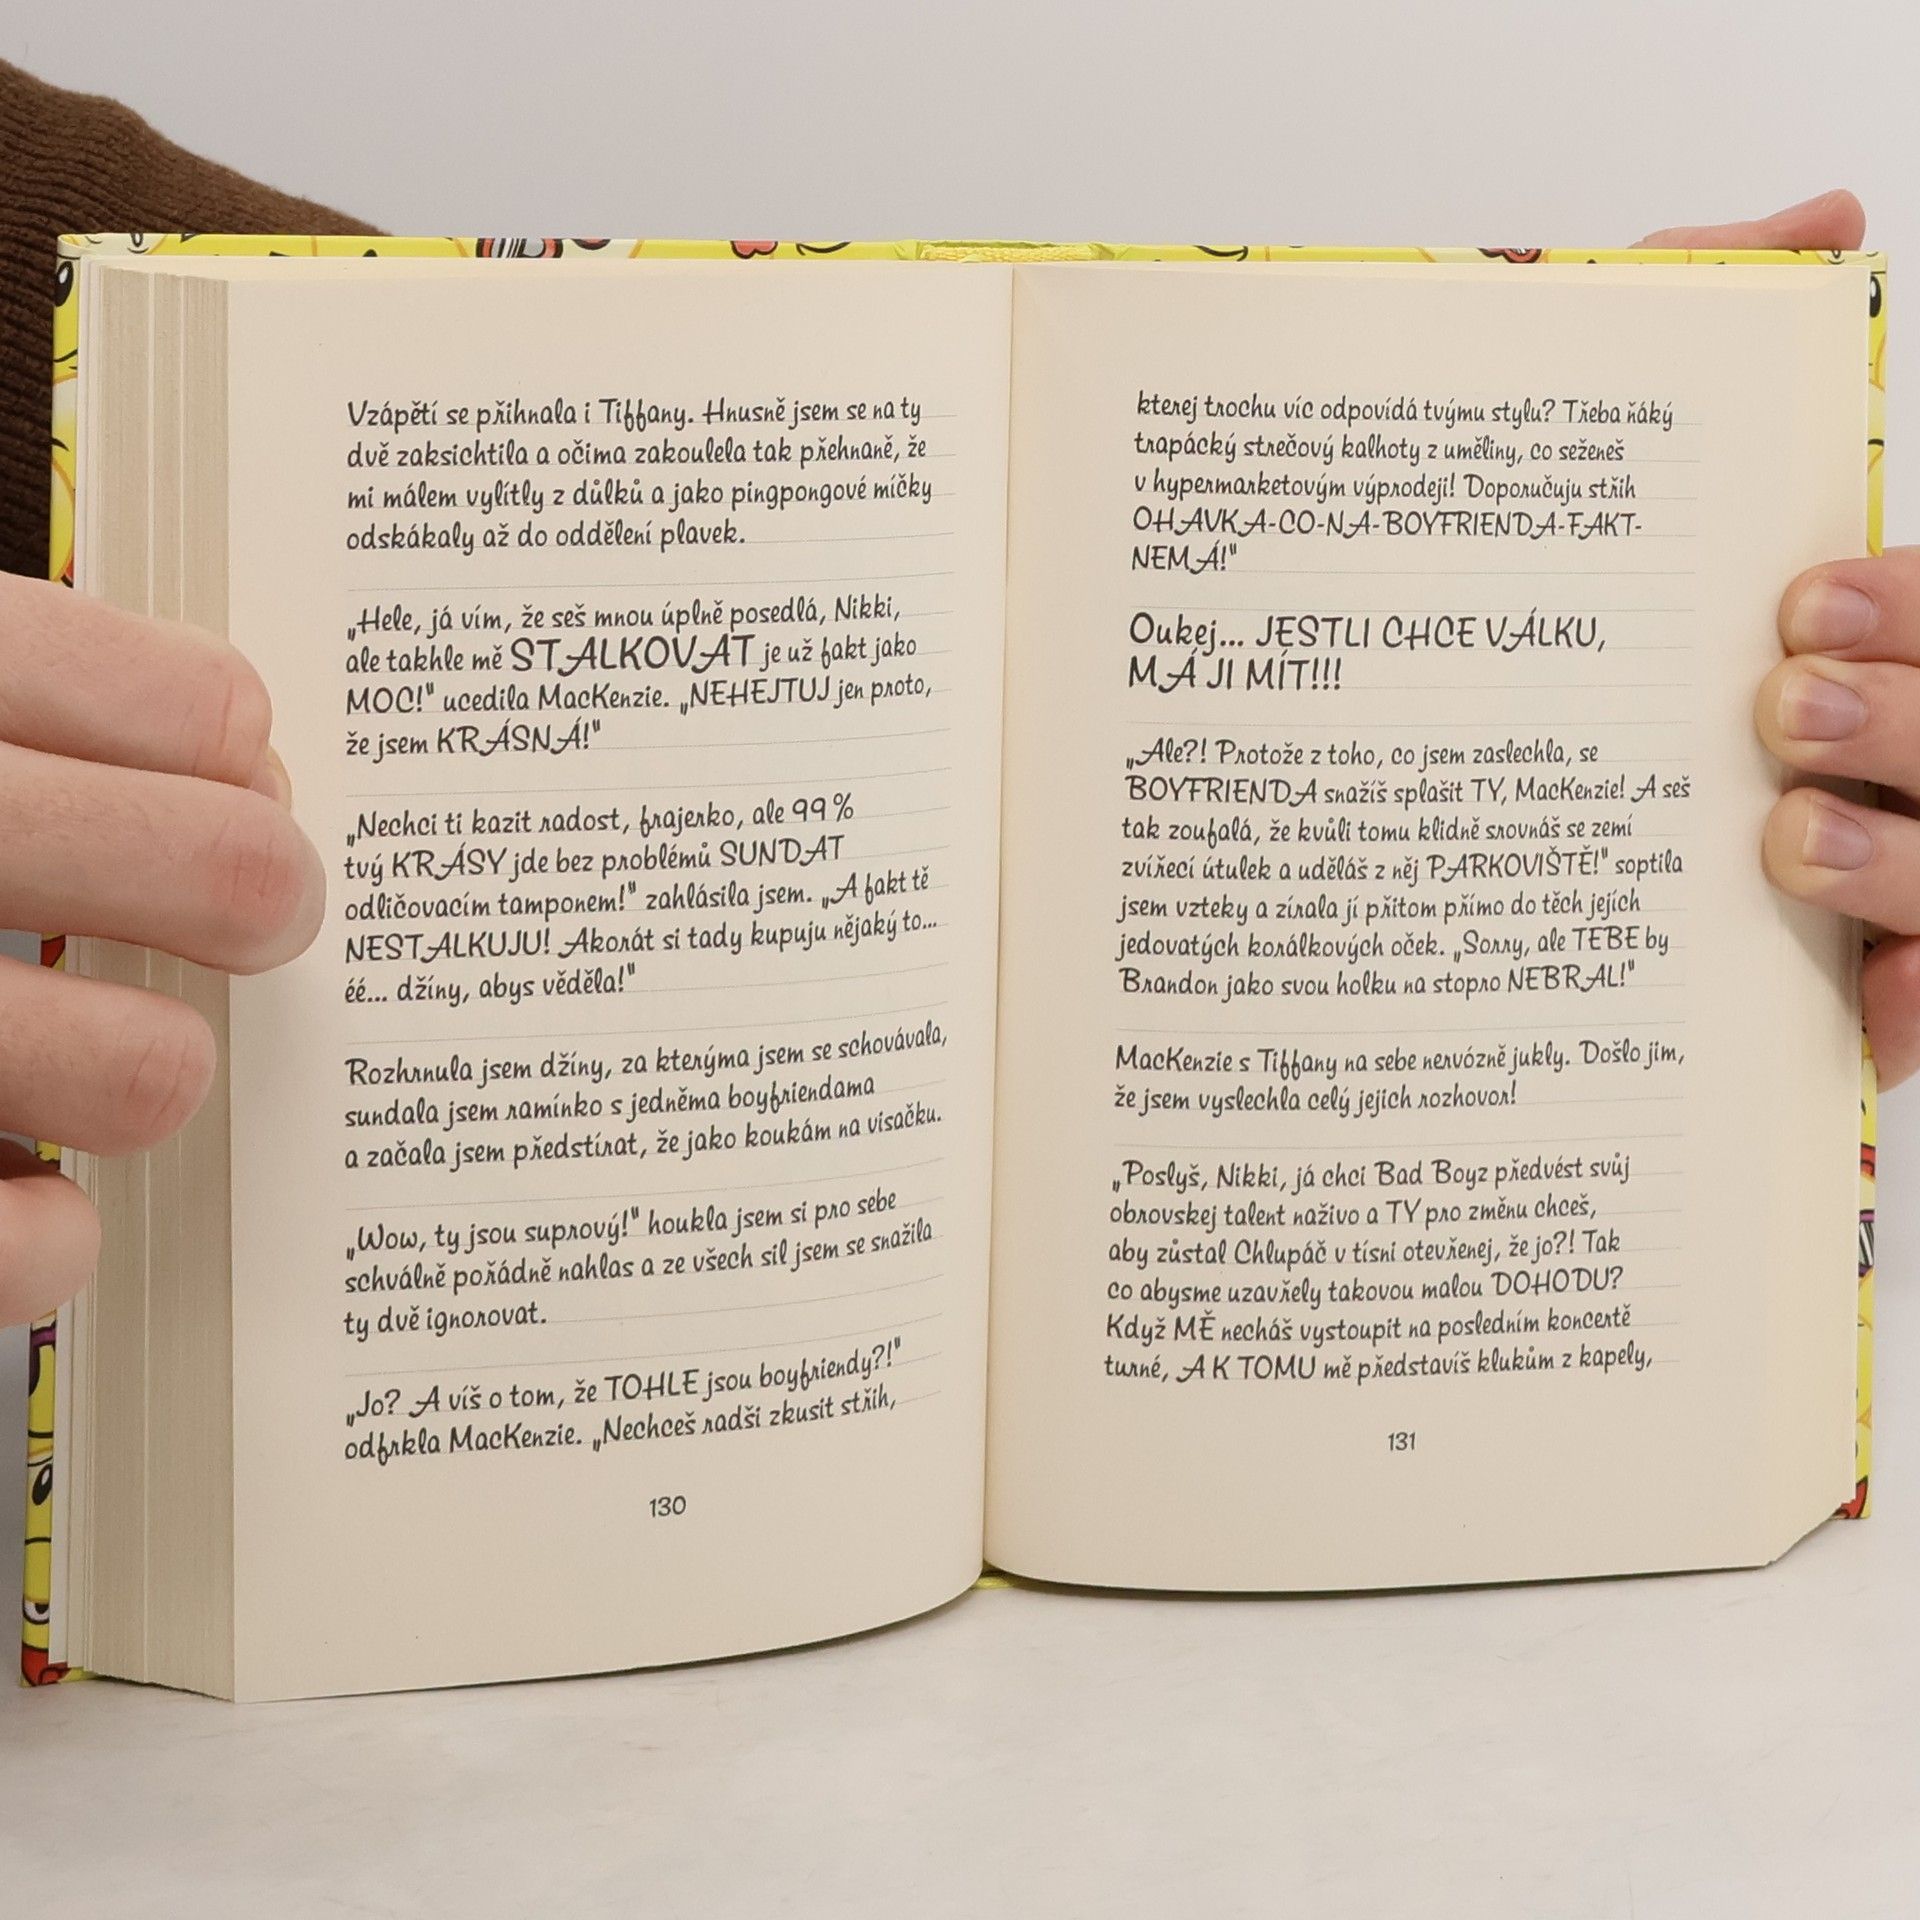 Vzápětí se přihnala i Tiffany. Hnusně jsem se na ty
dvě zaksichtila a očima zakoulela tak přehnaně, že
mi málem vylítly z důlků a jako pingpongové míčky
odskákaly až do oddělení plavek.
„Hele, já vím, že seš mnou úplně posedlá, Nikki,
ale takhle mě STALKOVAT je už fakt jako
MOC!" ucedila MacKenzie. „NEHEJTUJ jen proto,
že jsem KRÁSNÁ!"
„Nechci ti kazit radost, frajerko, ale 99 %
tvý KRÁSY jde bez problémů SUNDAT
odličovacím tamponem!" zahlásila jsem. „A fakt tě
NESTALKUJU! Akorát si tady kupuju nějaký to...
éé... džíny, abys věděla!"
Rozhrnula jsem džíny, za kterýma jsem se schovávala,
sundala jsem ramínko s jedněma boyfriendama
a začala jsem předstírat, že jako koukám na visačku.
„Wow, ty jsou suprový!" houkla jsem si pro sebe
schválně pořádně nahlas a ze všech sil jsem se snažila
ty dvě ignorovat.
„Jo? A víš o tom, že TOHLE jsou boyfriendy?!"
odfrkla MacKenzie. „Nechceš radši zkusit střih,
130
kterej trochu víc odpovídá tvýmu stylu? Třeba ňáký
trapácký strečový kalhoty z uměliny, co seženeš
v hypermarketovým výprodeji! Doporučuju střih
OHAVKA-CO-NA-BOYFRIENDA-FAKT-
NEMÁ!"
Oukej... JESTLI CHCE VÁLKU,
MÁ JI MÍT!!!
„Ale?! Protože z toho, co jsem zaslechla, se
BOYFRIENDA snažíš splašit TY, MacKenzie! A seš
tak zoufalá, že kvůli tomu klidně srovnáš se zemí
zvířecí útulek a uděláš z něj PARKOVIŠTĚ!" soptila
jsem vzteky a zírala jí přitom přímo do těch jejích
jedovatých korálkových oček. „Sorry, ale TEBE by
Brandon jako svou holku na stopro NEBRAL!"
MacKenzie s Tiffany na sebe nervózně jukly. Došlo jim,
že jsem vyslechla celý jejich rozhovor!
„Poslyš, Nikki, já chci Bad Boyz předvést svůj
obrovskej talent naživo a TY pro změnu chceš,
aby zůstal Chlupáč v tísni otevřenej, že jo?! Tak
co abysme uzavřely takovou malou DOHODU?
Když MĚ necháš vystoupit na posledním koncertě
turné, A K TOMU mě představíš klukům z kapely,
131